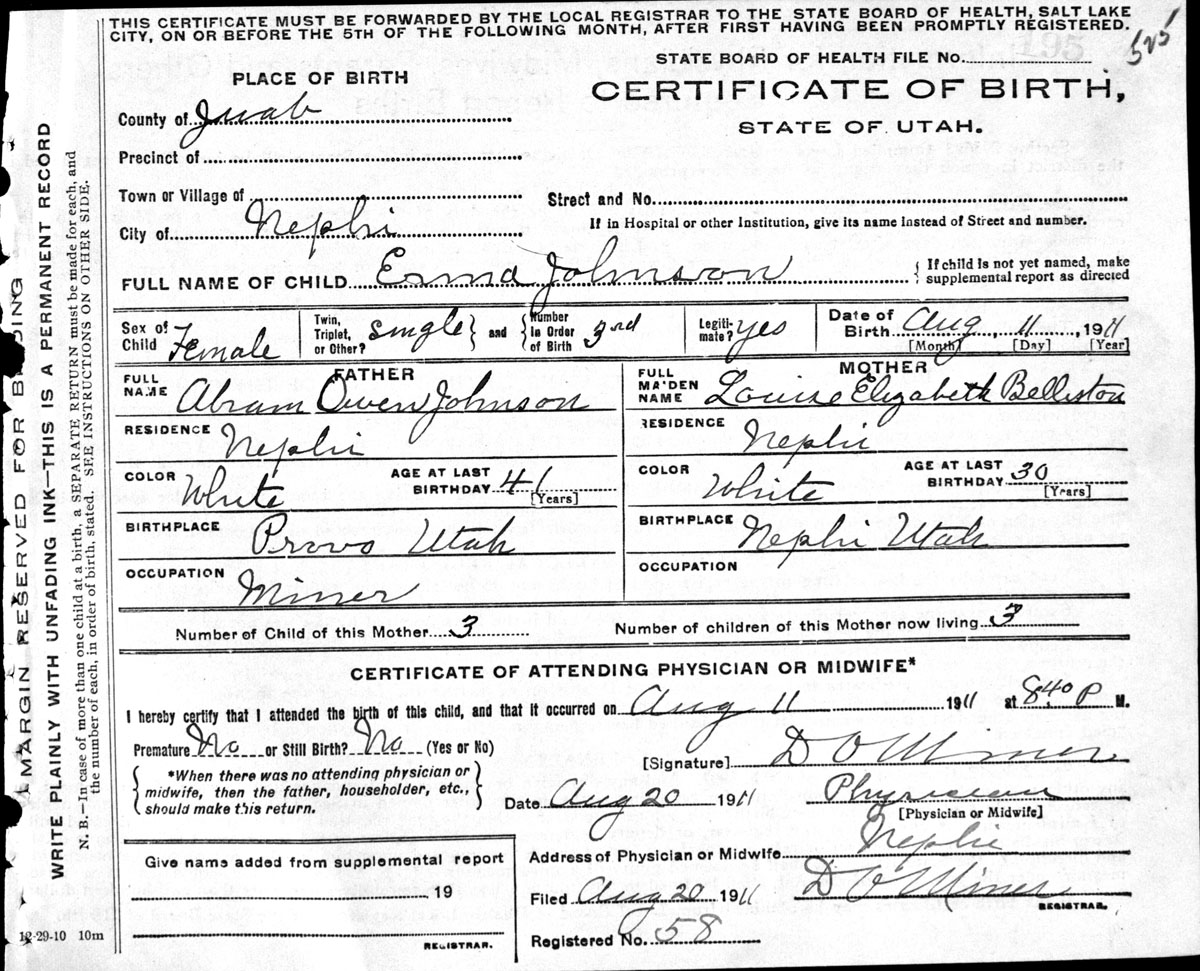 THIS CERTIFICATE MUST BE FORWARDED BY THE LOCAL REGISTRAR TO THE STATE BOARD OF HEALTH, SALT LAKE
CITY, ON OR BEFORE THE 5TH OF THE FOLLOWING MONTH, AFTER FIRST HAVING BEEN PROMPTLY REGISTERED.
525
PLACE OF BIRTH
STATE BOARD OF HEALTH FILE No.
CERTIFICATE OF BIRTH,
STATE OF UTAH.
County of Juab
Precinct of
Town or Village of
Street and No.
City of Nephi
If in Hospital or other Institution, give its name instead of Street and number.
FULL NAME OF CHILD Erma Johnson { If child is not yet named, make
supplemental report as directed
Sex of Child Female
Twin, Triplet, or Other? single } and { Number in Order of Birth 3rd
Legiti-mate? yes
Date of Birth Aug 11, 1911
[Month] [Day] [Year]
FATHER
FULL NAME Abram Owen Johnson
RESIDENCE Nephi
COLOR White AGE AT LAST BIRTHDAY 41 [Years]
BIRTHPLACE Provo Utah
OCCUPATION Miner
MOTHER
FULL MAIDEN NAME Louise Elizabeth Belliston
RESIDENCE Nephi
COLOR White AGE AT LAST BIRTHDAY 30 [Years]
BIRTHPLACE Nephi Utah
OCCUPATION
Number of Child of this Mother 3
Number of children of this Mother now living 3
CERTIFICATE OF ATTENDING PHYSICIAN OR MIDWIFE*
I hereby certify that I attended the birth of this child, and that it occurred on Aug 11 1911 at 8:40 P M.
Premature No or Still Birth? No (Yes or No)
{ *When there was no attending physician or
midwife, then the father, householder, etc.,
should make this return. }
[Signature] D O Miner
Date Aug 20 1911 Physician
[Physician or Midwife]
Address of Physician or Midwife Nephi
Filed Aug 20 1911 D O Miner
REGISTRAR.
Registered No. 58
Give name added from supplemental report
19
REGISTRAR.
12-29-10 10m
MARGIN RESERVED FOR BINDING
WRITE PLAINLY WITH UNFADING INK—THIS IS A PERMANENT RECORD
N. B.—In case of more than one child at a birth, a SEPARATE RETURN must be made for each, and
the number of each, in order of birth, stated. SEE INSTRUCTIONS ON OTHER SIDE.